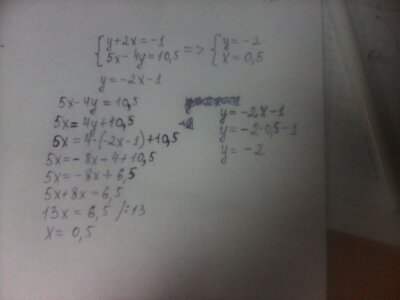 { y+2x=-1 => { y=-2
5x-4y=10,5 x=0,5
y=-2x-1
5x-4y=10,5
5x=4y+10,5
5x=4·(-2x-1)+10,5
5x=-8x-4+10,5
5x=-8x+6,5
5x+8x=6,5
13x=6,5 /:13
x=0,5
y=-2x-1
y=-2·0,5-1
y=-2